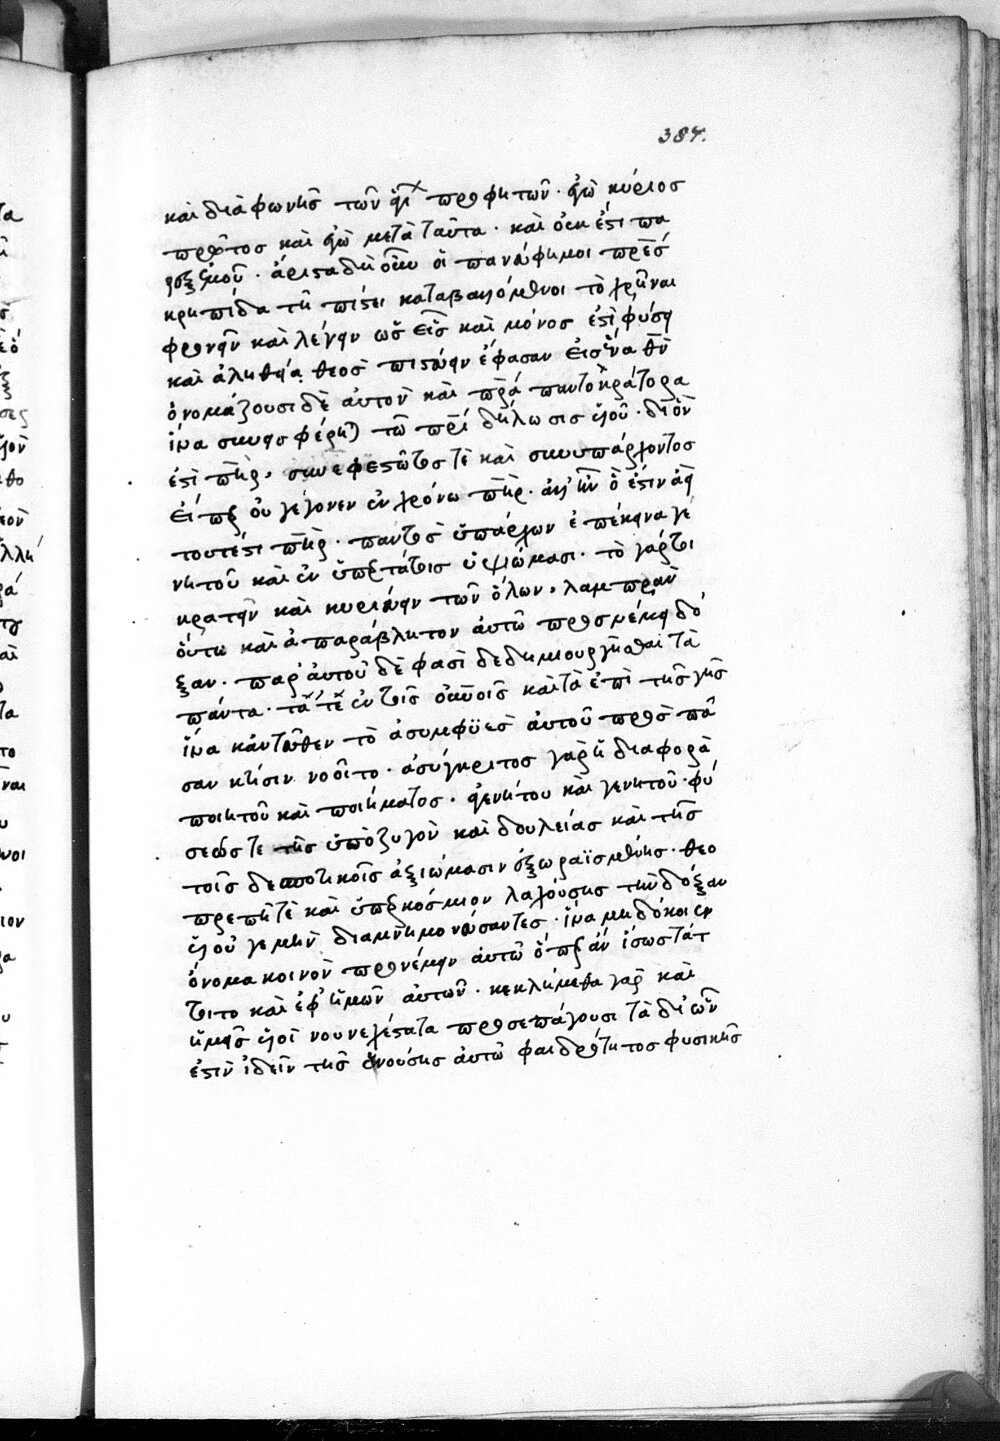 387.
καὶ διὰ φωνῆς τῶν ἁγί προφητῶν. ἐγὼ κύριος
πρῶτος καὶ ἐγὼ μετὰ ταῦτα. καὶ οὐκ ἔστι πα
ρὲξ ἐμοῦ. ἄριστα δὴ οὖν οἱ πανεύφημοι πρες
κρηπίδα τῇ πίστει καταβαλλόμενοι τὸ χρῆναι
φρονεῖν καὶ λέγειν ὡς εἷς καὶ μόνος ἐστὶ φύσει
καὶ ἀληθεία θεὸς πιστεύειν ἔφασαν εἰς ἕνα θν
ὀνομάζουσι δὲ αὐτὸν καὶ πρα παντοκράτορα
ἵνα συνεισφέρηται τῶ πρι δήλωσις υἱοῦ. δι ὃν
ἐστὶ πηρ. συνεφεστῶτος τὲ καὶ συνυπάρχοντος
εἴπερ οὐ γέγονεν ἐν χρόνω πηρ. ἀλλ' ἦν ὅ ἐστιν ἀεὶ
τουτέστι πηρ. παντὸς ὑπάρχων ἐπέκεινα γε
νητοῦ καὶ ἐν ὑπερτάτοις ὑψώμασι. τὸ γάρ τοι
κρατεῖν καὶ κυριεύειν τῶν ὅλων, λαμπρὰν
οὕτω καὶ ἀπαράβλητον αὐτῶ προσνέμει δό
ξαν. παρ' αὐτοῦ δὲ φασὶ δεδημιουργῆσθαι τὰ
πάντα. τά τε ἐν τοῖς οὐνοῖς καὶ τὰ ἐπὶ τῆς γῆς
ἵνα κἀντεῦθεν τὸ ἀσυμφυὲς αὐτοῦ πρὸς πᾶ
σαν κτίσιν νοοῖτο. ἀσύγκριτος γὰρ ἡ διαφορὰ
ποιητοῦ καὶ ποιήματος. ἀγενήτου καὶ γενητοῦ. φύ
σεώς τε τῆς ὑπὸ ζυγὸν καὶ δουλείας καὶ τῆς
τοῖς δεσποτικοῖς ἀξιώμασιν ἐξωραϊσμένης. θεο
πρεπῆ τὲ καὶ ὑπερκόσμιον λαχούσης τὴν δόξαν
υἱοῦ γε μὴν διαμνημονεύσαντες. ἵνα μὴ δοκοῖεν
ὄνομα κοινὸν προνέμειν αὐτῶ ὅπερ ἂν ἴσως τάτ
τοιτο καὶ ἐφ' ἡμῶν αὐτῶν. κεκλήμεθα γὰρ καὶ
ἡμεῖς υἱοὶ νουνεχέστατα προσεπάγουσι τὰ δι' ὧν
ἐστὶν ἰδεῖν τῆς ἐνούσης αὐτῶ φαιδρότητος φυσικῆς